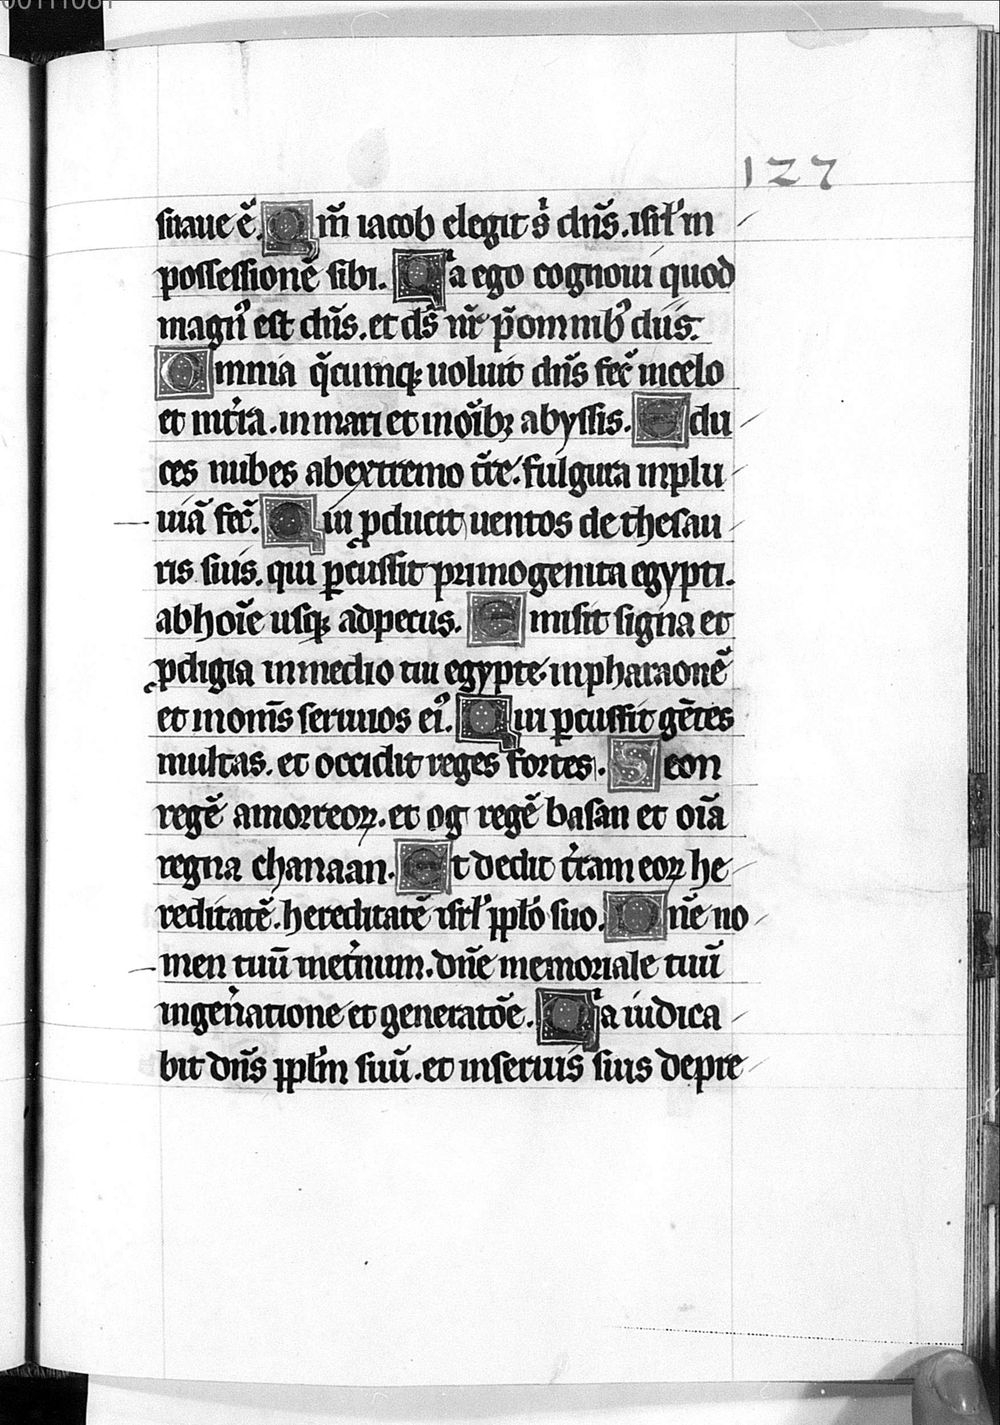 127
suaue ē. Qm̄ iacob elegit s̄ dn̄s. isrl' in
possessionē sibi. Qa ego cognoui quod
magn᷒ est dn̄s. et ds̄ nr̄ p̄ omnib᷒ diis.
Omnia q̄cumq; uoluit dn̄s fec̄ in celo
et in t̄ra. in mari et in oīb; abyssis. Edu
ces nubes ab extremo t̄re. fulgura in plu
uiā fec̄. Qui ꝓducit uentos de thesau
ris suis. qui ꝑcussit primogenita egypti.
ab hoīe usq; ad pecus. Emisit signa et
ꝓdigia in medio tui egypte. in pharaonē
et in om̄s seruuos ei᷒. Qui ꝑcussit gētes
multas. et occidit reges fortes. Seon
regē amorreoꝝ. et og regē basan et oīa
regna chanaan. Et dedit t̄ram eoꝝ he
reditatē. hereditatē isrl' pplō suo. Dn̄e no
men tuū in et̄num. dn̄e memoriale tuū
in gen̄atione et generatōe. Qa iudica
bit dn̄s ppl̄m suū. et in seruis suis depre